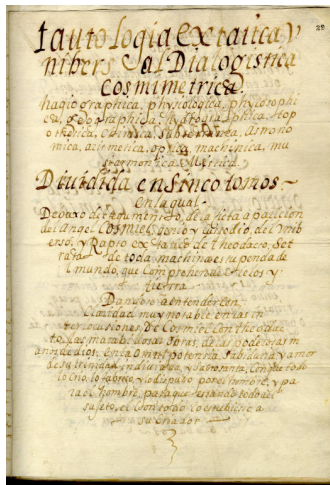 28
tautologia extatica y
nibers al Dialogistica
cosmimetrica.
hagiographica, physiologica, phylosophi
ca, geographica, hyptographica, hopo
thetica, Chimica, subterranea, Astrono
mica, arismetica, optica, machinica, mu
sica armonica, Metrica.
Diuidida en sinco tomos
en la qual
Debaxo del argumento, de la ficta aparicion
del angel Cosmiel genio y custodio del vnib
erso, y Rapto extatico de theodacto, Se t
rata de toda machina estupenda de
l mundo, que Comprehende Cielos y
tierra
Dandose a entender Con
Claridad muy notable en ras in
teresasiones De Cosmiel Con theodac
to, las marabillosas obras, de las poderosas m
anos de dios, en la omnipotencia, sabiduria y amor
de su trinidad yndiuidua, y sacrosanta, Con que todo
lo Crio, lo fabrico, y lo dispuso por el hombre, y pa
ra el hombre, para que estando todo
sujeto, el Con todo lo estubiene a
su Criador